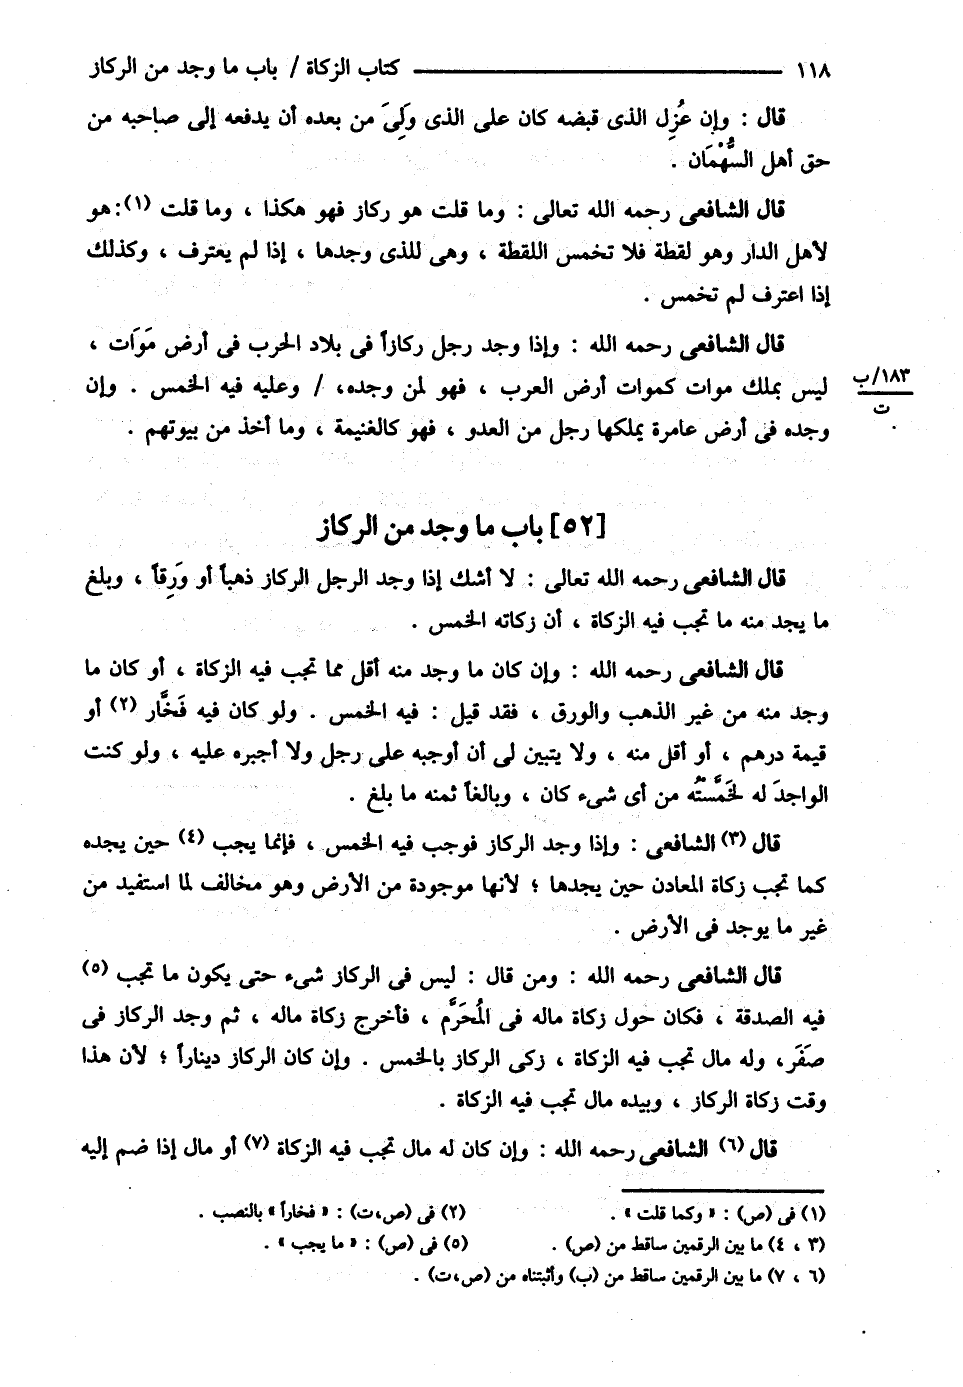 ١١٨ ــــــــــــــــــــ كتاب الزكاة / باب ما وجد من الركاز
قال : وإن عُزِل الذى قبضه كان على الذى وَلِىَ من بعده أن يدفعه إلى صاحبه من
حق أهل السُّهْمَان .
قال الشافعى رحمه الله تعالى : وما قلت هو ركاز فهو هكذا ، وما قلت (١): هو
لأهل الدار وهو لقطة فلا تخمس اللقطة ، وهى للذى وجدها ، إذا لم يعترف ، وكذلك
إذا اعترف لم تخمس .
قال الشافعى رحمه الله : وإذا وجد رجل ركازاً فى بلاد الحرب فى أرض مَوَات ،
ليس بملك موات كموات أرض العرب ، فهو لمن وجده، / وعليه فيه الخمس . وإن
١٨٣/ب
ت
وجده فى أرض عامرة يملكها رجل من العدو ، فهو كالغنيمة ، وما أخذ من بيوتهم .
[٥٢] باب ما وجد من الركاز
قال الشافعى رحمه الله تعالى : لا أشك إذا وجد الرجل الركاز ذهباً أو وَرِقاً ، وبلغ
ما يجد منه ما تجب فيه الزكاة ، أن زكاته الخمس .
قال الشافعى رحمه الله : وإن كان ما وجد منه أقل مما تجب فيه الزكاة ، أو كان ما
وجد منه من غير الذهب والورق ، فقد قيل : فيه الخمس . ولو كان فيه فَخَّار (٢) أو
قيمة درهم ، أو أقل منه ، ولا يتبين لى أن أوجبه على رجل ولا أجبره عليه ، ولو كنت
الواجدَ له لخَمَّسْتُه من أى شىء كان ، وبالغاً ثمنه ما بلغ .
قال (٣) الشافعى : وإذا وجد الركاز فوجب فيه الخمس ، فإنما يجب (٤) حين يجده
كما تجب زكاة المعادن حين يجدها ؛ لأنها موجودة من الأرض وهو مخالف لما استفيد من
غير ما يوجد فى الأرض .
قال الشافعى رحمه الله : ومن قال : ليس فى الركاز شىء حتى يكون ما تجب (٥)
فيه الصدقة ، فكان حول زكاة ماله فى المُحَرَّم ، فأخرج زكاة ماله ، ثم وجد الركاز فى
صَفَر، وله مال تجب فيه الزكاة ، زكى الركاز بالخمس . وإن كان الركاز ديناراً ؛ لأن هذا
وقت زكاة الركاز ، وبيده مال تجب فيه الزكاة .
قال (٦) الشافعى رحمه الله : وإن كان له مال تجب فيه الزكاة (٧) أو مال إذا ضم إليه
(١) فى (ص) : « وكما قلت » . (٢) فى (ص،ت) : « فخاراً » بالنصب .
(٣ ، ٤) ما بين الرقمين ساقط من (ص) . (٥) فى (ص) : « ما يجب » .
(٦ ، ٧) ما بين الرقمين ساقط من (ب) وأثبتناه من (ص،ت) .